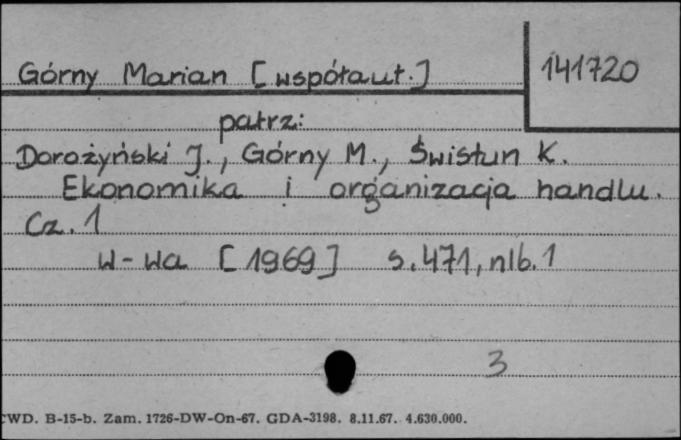 Górny Marian [współaut.]
141720
patrz:
Dorożyński J., Górny M., Świstun K.
Ekonomika i organizacja handlu.
Cz. 1
W-wa [1969] s. 471, nlb. 1
3
CWD. B-15-b. Zam. 1726-DW-On-67. GDA-3198. 8.11.67. 4.630.000.